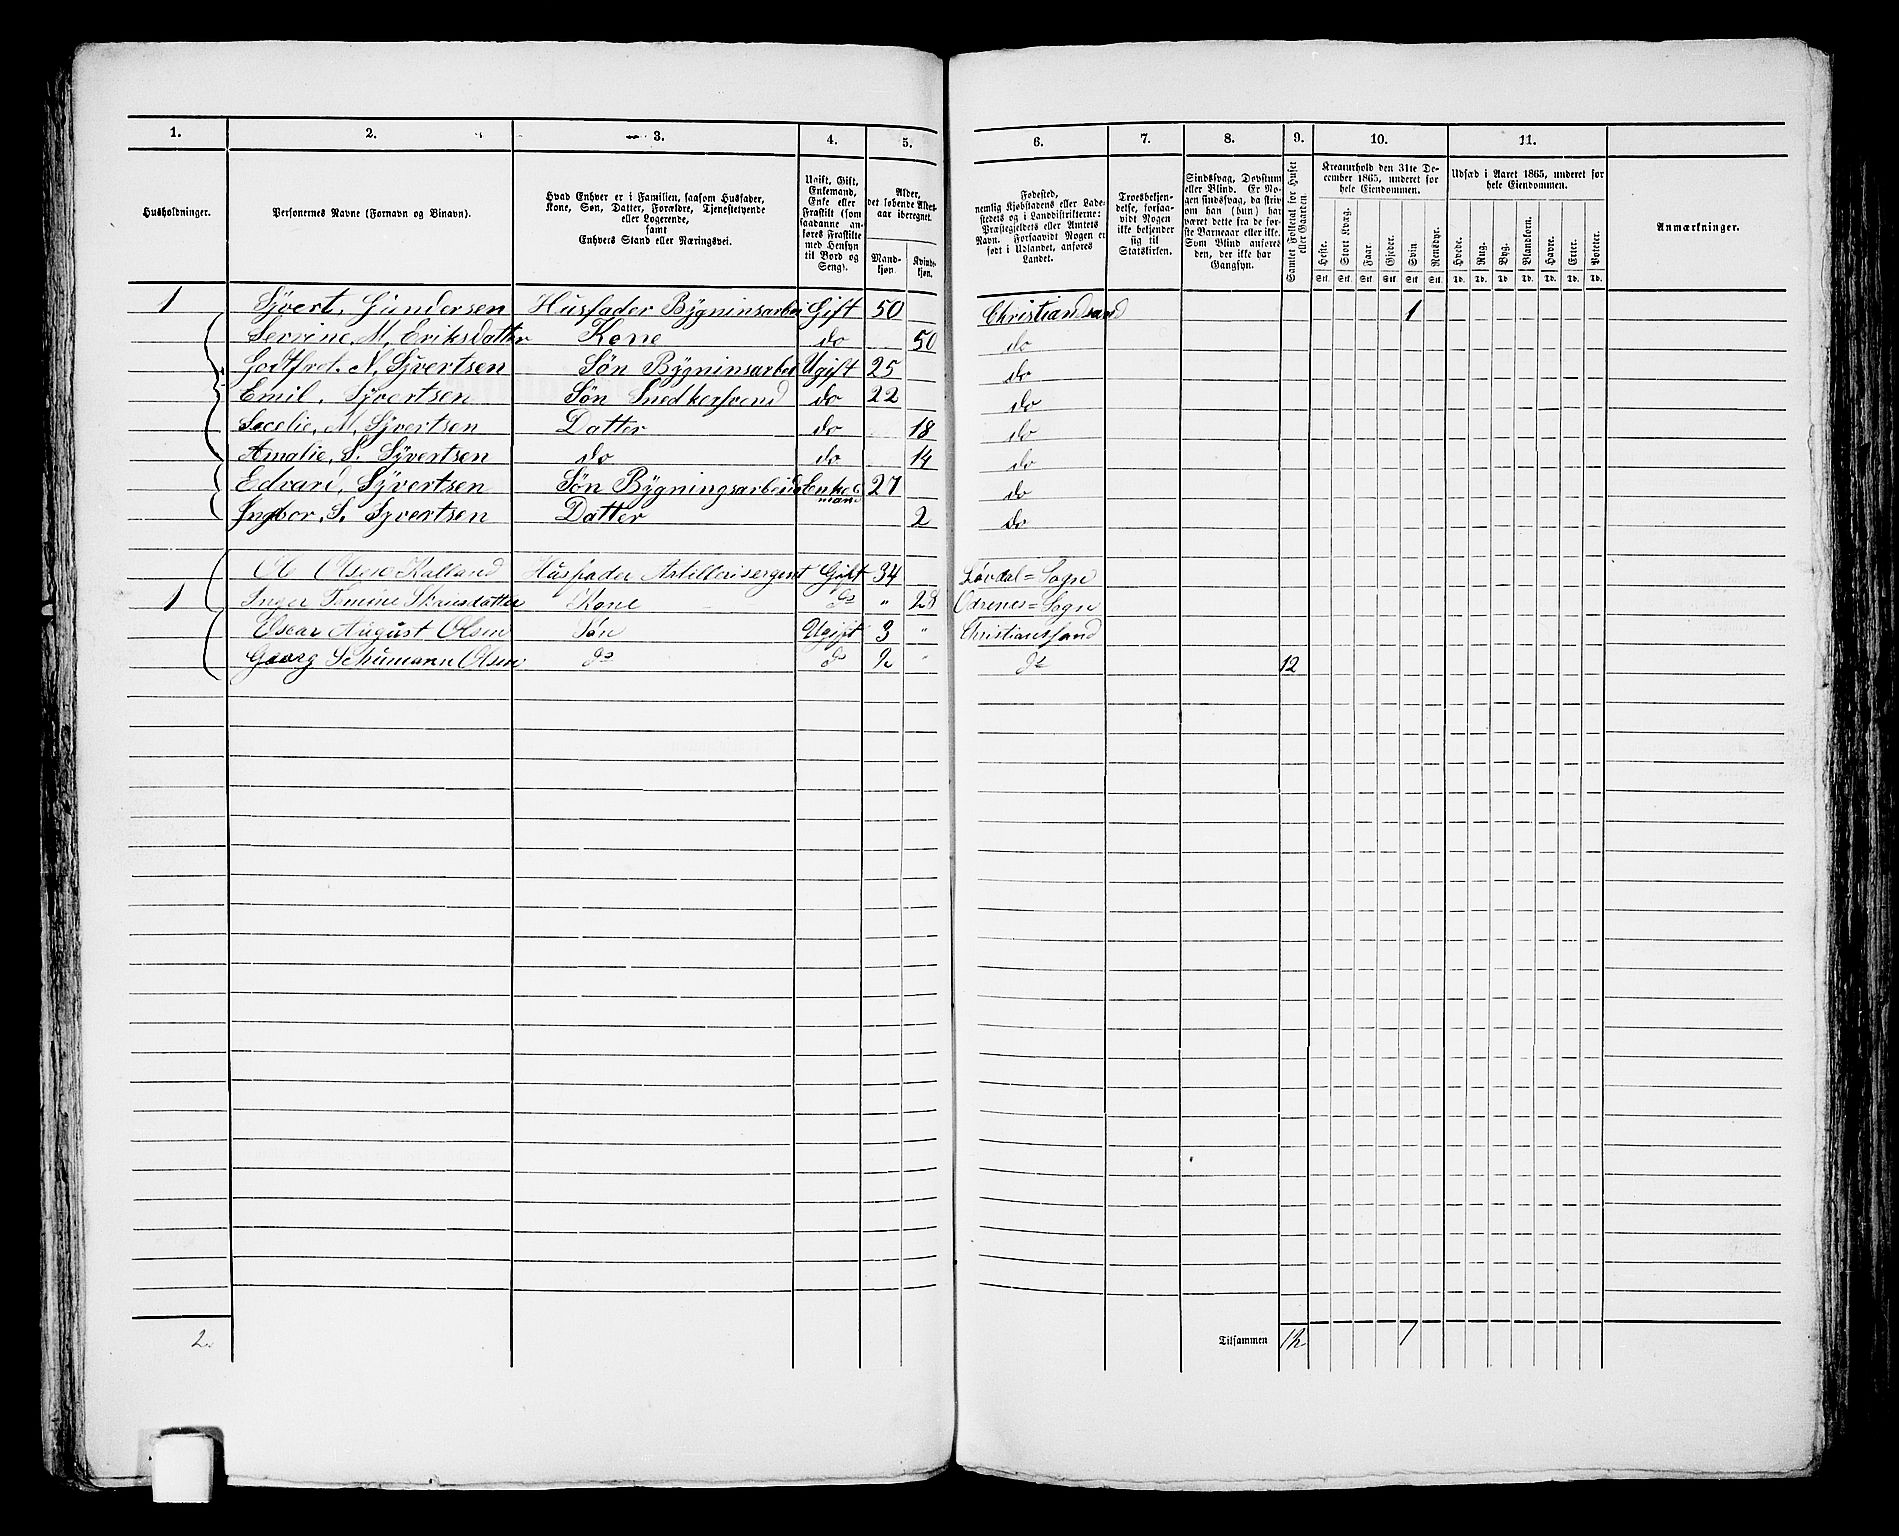 1. 2. 3. 4. 5. 6. 7. 8. 9. 10. 11.
Husholdninger.
Personernes Navne (Fornavn og Binavn).
Hvad Enhver er i Familien, saasom Husfader,
Kone, Søn, Datter, Forældre, Tjenestetyende
eller Logerende,
samt
Enhvers Stand eller Næringsvei.
Ugift, Gift,
Enkemand,
Enke eller
Fraskilt (som
saadanne an-
føres Fraskilte
med Hensyn
til Bord og
Seng).
Alder,
det løbende Alders-
aar iberegnet.
Mand-
kjøn.
Kvinde-
kjøn.
Fødested,
nemlig Kjøbstadens eller Lade-
stedets og i Landdistrikterne:
Præstegjeldets eller Amtets
Navn. Forsaavidt Nogen er
født i Udlandet, anføres
Landet.
Troesbekjen-
delse, forsaa-
vidt Nogen
ikke bekjender
sig til
Statskirken.
Sindssvag, Døvstum
eller Blind. Er No-
gen sindssvag, da skriv
om han (hun) har
været dette fra de før-
ste Barneaar eller ikke.
Som Blind anføres
den, der ikke har
Gangsyn.
Samlet Folketal for Huset
eller Gaarden
Kreaturhold den 31te De-
cember 1865, underet for
hele Eiendommen.
Heste. Stort Kvæg. Faar. Gjeder. Svin Rensdyr.
Stk. Stk. Stk. Stk. Stk. Stk.
Udsæd i Aaret 1865, underet for
hele Eiendommen.
Hvede. Rug. Byg. Blandkorn. Havre. Erter. Poteter.
Td. Td. Td. Td. Td. Td. Td.
Anmærkninger.
1 Syvert, Gundersen Husfader Bygninsarbei Gift 50 Christiandsand 1
Serrine, M, Eriksdatter Kone do 50 do
Godtfred. N, Syvertsen Søn Bygninsarbei Ugift 25 do
Emil, Syvertsen Søn Snedkersvend do 22 do
Secelie, M, Syvertsen Datter do 18 do
Amalie, S. Syvertsen do do 14 do
Edvard, Syvertsen Søn Bygningsarbeid Enke mand 27 do
Ingbor, S. Syvertsen Datter 2 do
Ole Olsen Kalland Husfader Artillerisergent Gift 34 Løvdal=Sogn
1 Inger Kone do " 28 Odrenes=Sogn
Oscar August Olsen Søn Ugift 3 " Christianssand
Georg Schumann Olsen do do 2 " do 12
2. Tilsammen 12 1